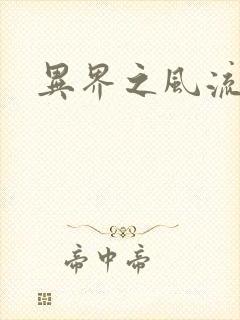 異界之風流
帝中帝